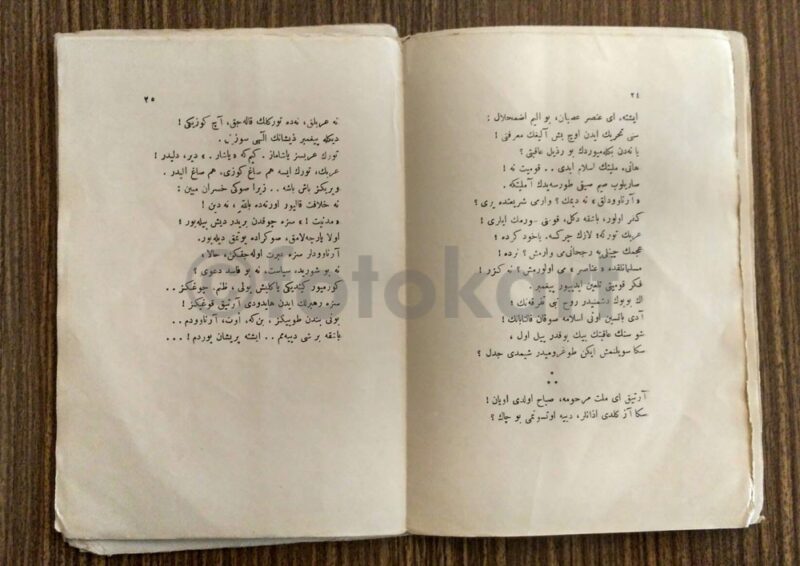 ٢٤
ایشته، ای عنصر عصیان، بو الیم اضمحلال :
سنی تحریك ایدن اوچ بش آلیغك معرفتی !
یا نه‌دن بكله‌میوردك بو رذیل عاقبتی ؟
هانی، ملیتك اسلام ایدی . . قومیت نه !
صاریلوب صیم صیقی طورسه‌یدك آ ملیتكه .
«آرناوودلق» نه دیمك؟ وارمی شریعتده یری ؟
كفر اولور، باشقه دكل، قومنی سورمك ایلری !
عربك توركه؛ لازك چركسه، یاخود كرده ؛
عجمك چینلی‌یه رجحانی‌می وارمش ؟ نرده !
مسلمانلقده «عناصر» می اولورمش؟ نه كزر !
فكر قومیتی تلعین ایدییور پیغمبر.
اك بویوك دشمنیدر روح نبی تفرقه‌نك ؛
آدی باتسین اونی اسلامه صوقان قالتابانك !
شو سنك عاقبتك بیك بوقدر ییل اول ،
سكا سویلنمش ایكن طوغرومیدر شیمدی جدل ؟
* * *
آرتیق ای ملت مرحومه، صباح اولدی اویان !
سكا آز كلدی اذانلر، دییه اوتسونمی بو چاك ؟
٢٥
نه عربلق، نه‌ده توركلك قاله‌جق، آچ كوزیكی !
دیكله پیغمبر ذیشانك الٓهی سوزینی .
تورك عربسز یاشاماز . كیم‌كه «یاشار . » دیر، دلیدر !
عربك، تورك ایسه هم صاغ كوزی، هم صاغ الیدر .
ویریكز باش باشه . . زیرا صوكی خسران مبین :
نه خلافت قالیور اورته‌ده باللٓه، نه دین !
«مدنیت !» سزه چوقدن بریدر دیش بیله‌یور؛
اولا پارچه‌لامق، صوكراده یوتمق دیله‌یور.
آرناوودلر سزه عبرت اوله‌جقكن، حالا،
نه بو شوریده سیاست، نه بو فاسد دعوی ؟
كورمیور كیتدیكی یاكلیش یولی ، ظلم، چوغیكز . .
سزه رهبرلك ایدن هایدودی آرتیق قوغیكز !
بونی بندن طوییكز، بن‌كه، اوت، آرناوودم . .
باشقه بر شی دییه‌مم . . ایشته پریشان یوردم ! . . .